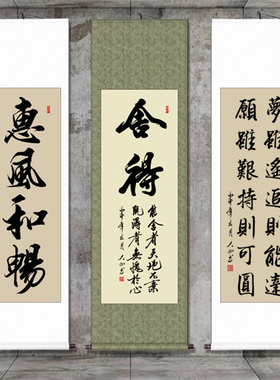 惠風和暢
舍得
能舍者天地不棄
能得者無愧於心
夢雖遙追則能達
願雖艱持則可圓